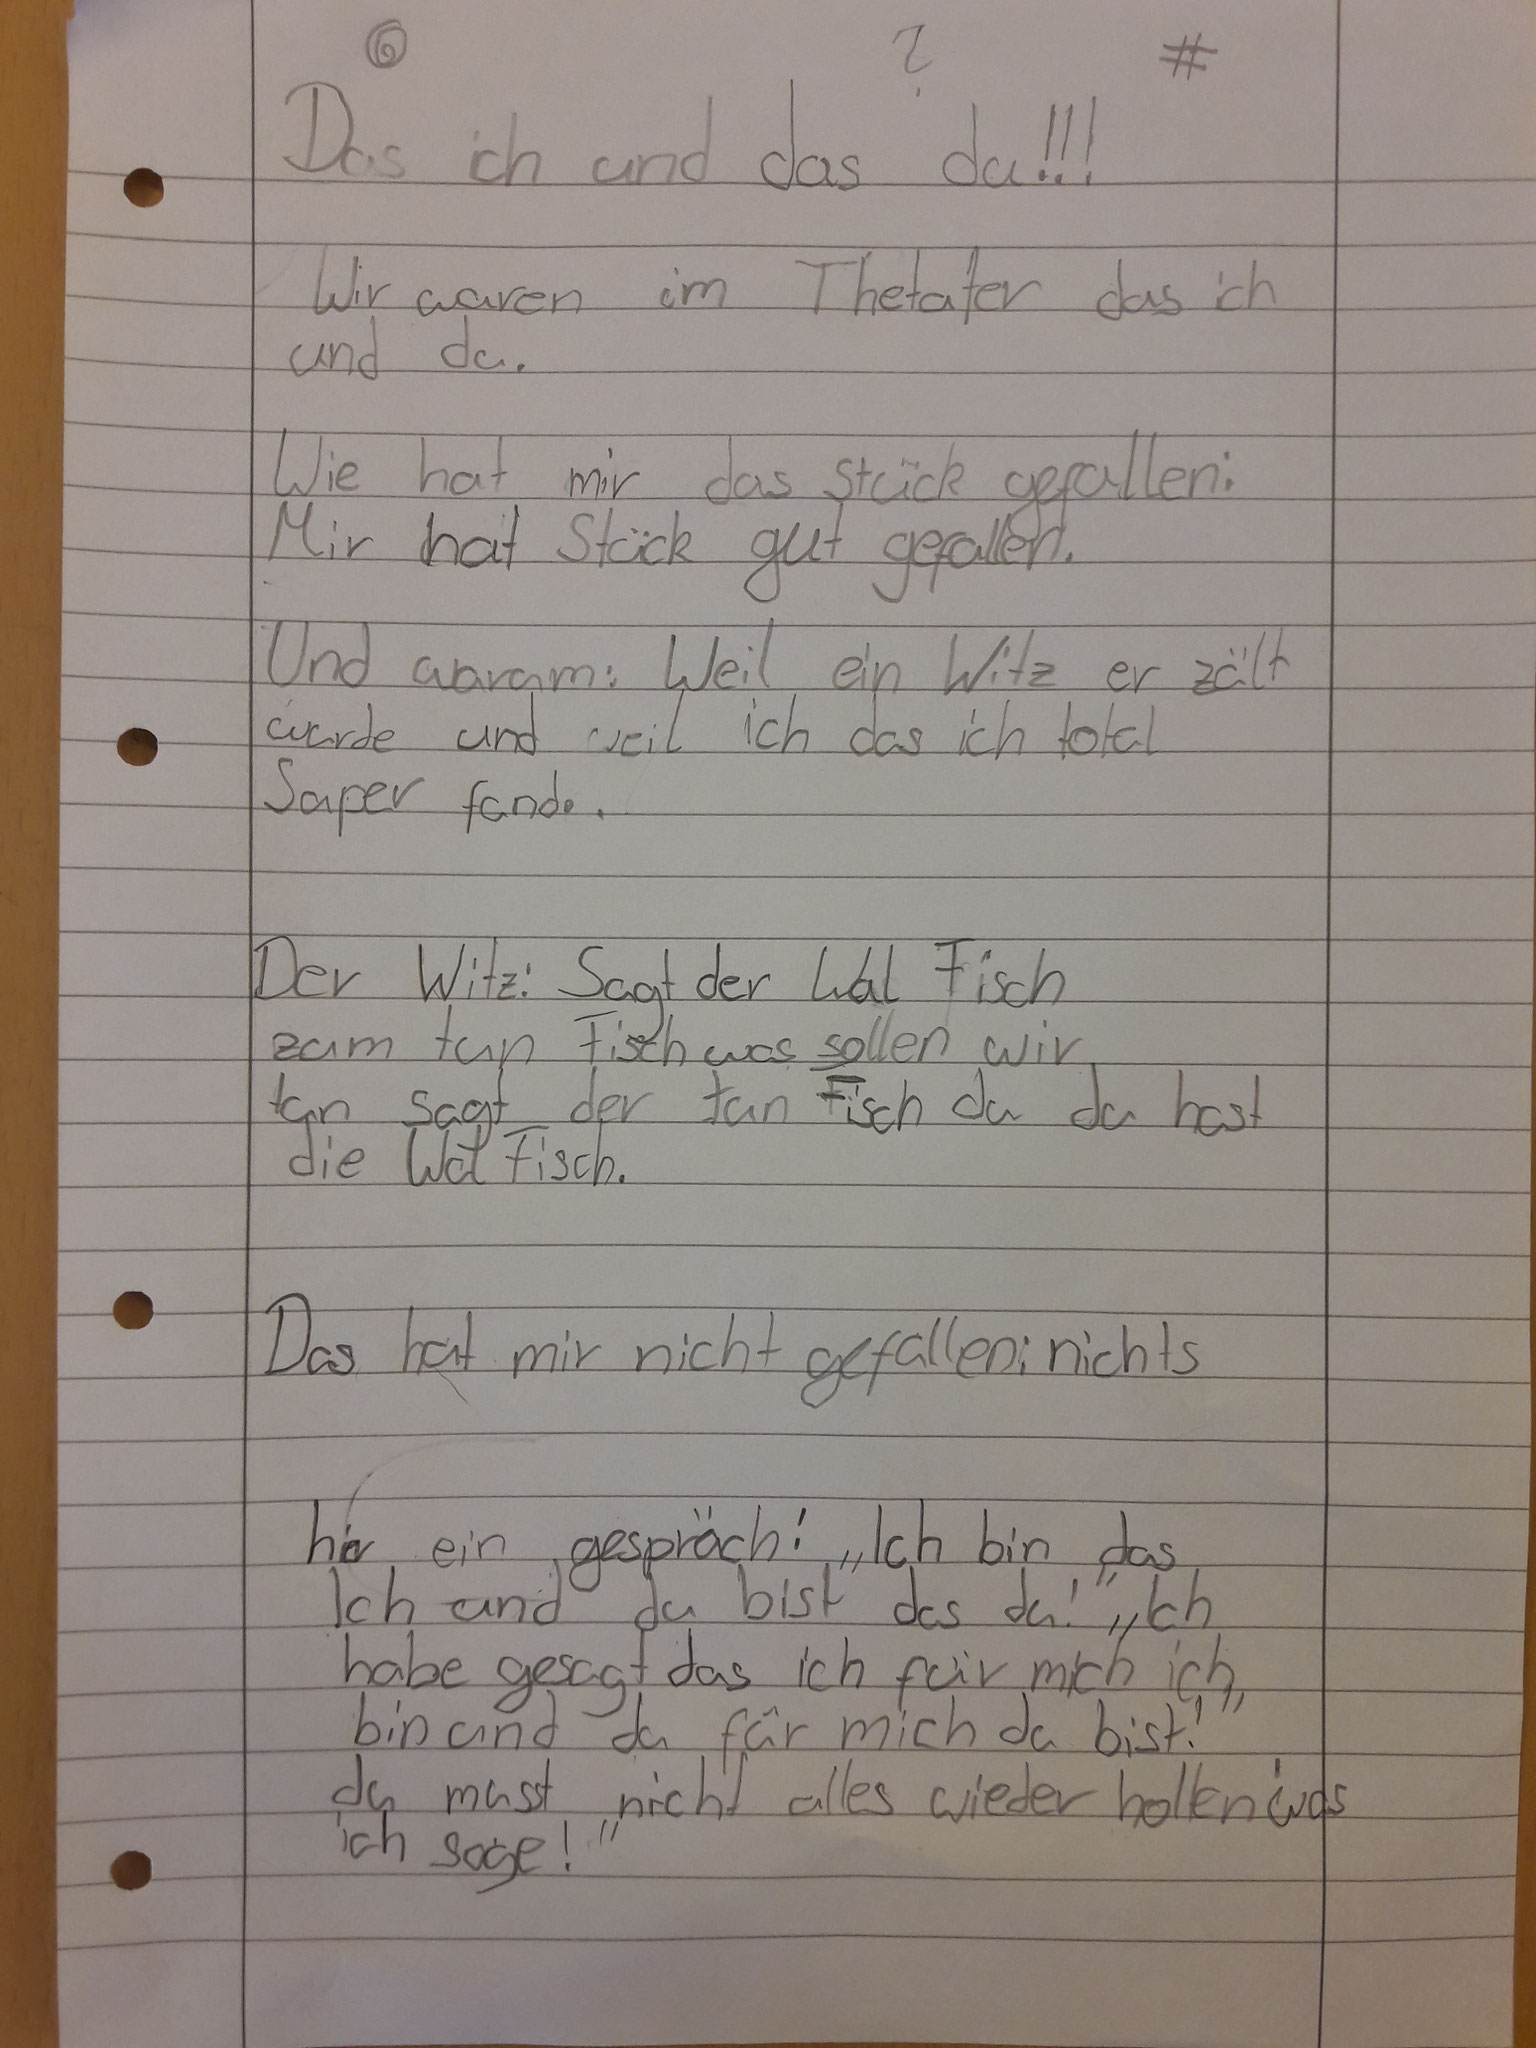 6 ? #
Das ich und das du!!!
Wir waren im Thetater das ich
und du.
Wie hat mir das stück gefallen:
Mir hat Stück gut gefallen.
Und warum: Weil ein Witz er zält
wurde und weil ich das ich total
Super fande.
Der Witz: Sagt der Wal Fisch
zum tun Fisch was sollen wir
tun sagt der tun Fisch du du hast
die Wal Fisch.
Das hat mir nicht gefallen: nichts
hir ein gespräch: „Ich bin das
Ich und du bist das du!" „Ich
habe gesagt das ich für mich ich
bin und du für mich du bist!"
„du must nicht alles wieder hollen was
ich sage!"